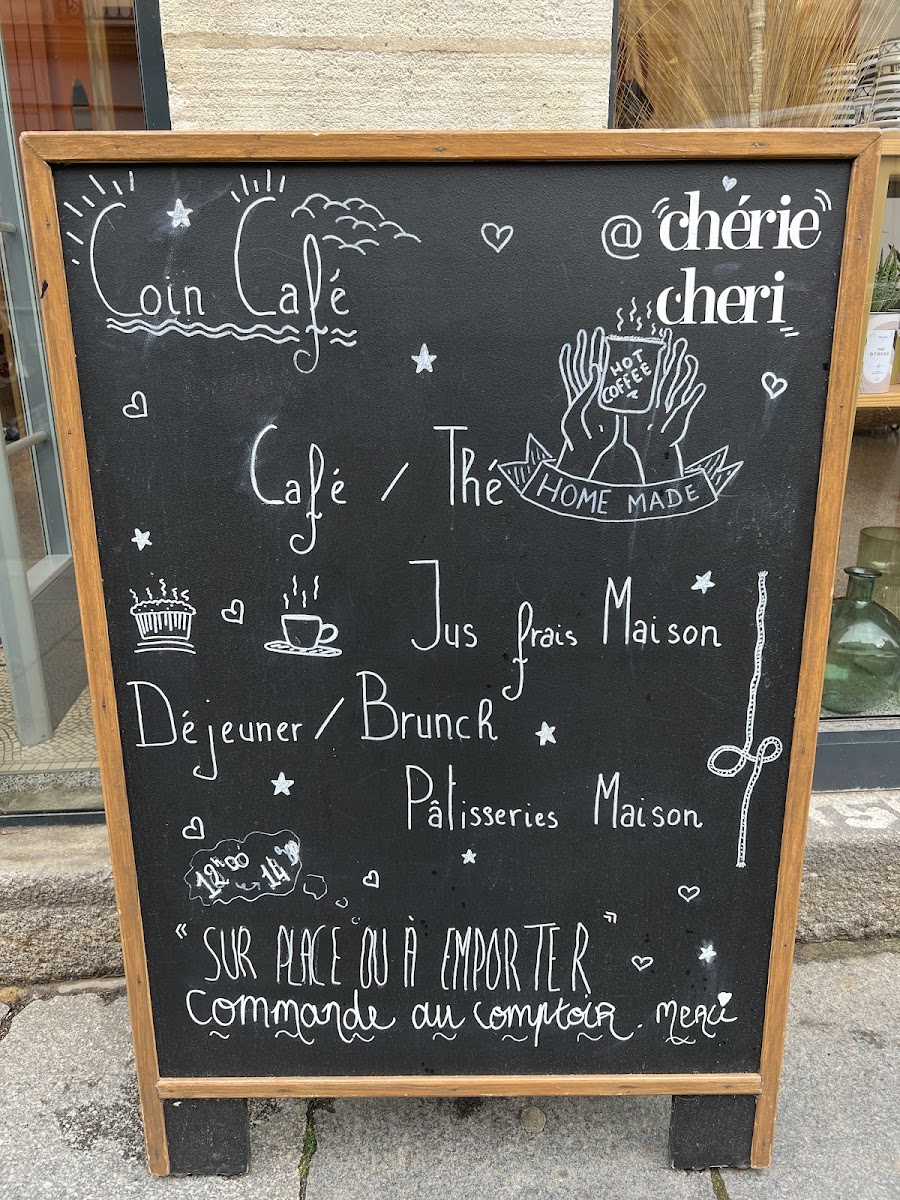 Coin Café
@ chérie
cheri
HOT
COFFEE
Café / Thé
HOME MADE
Jus frais Maison
Déjeuner / Brunch
Pâtisseries Maison
12h00 - 14h30
"SUR PLACE OU À EMPORTER"
Commande au comptoir. Merci